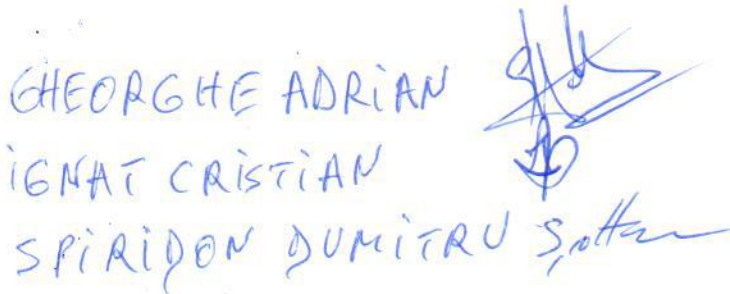 GHEORGHE ADRIAN
IGNAT CRISTIAN
SPIRIDON DUMITRU